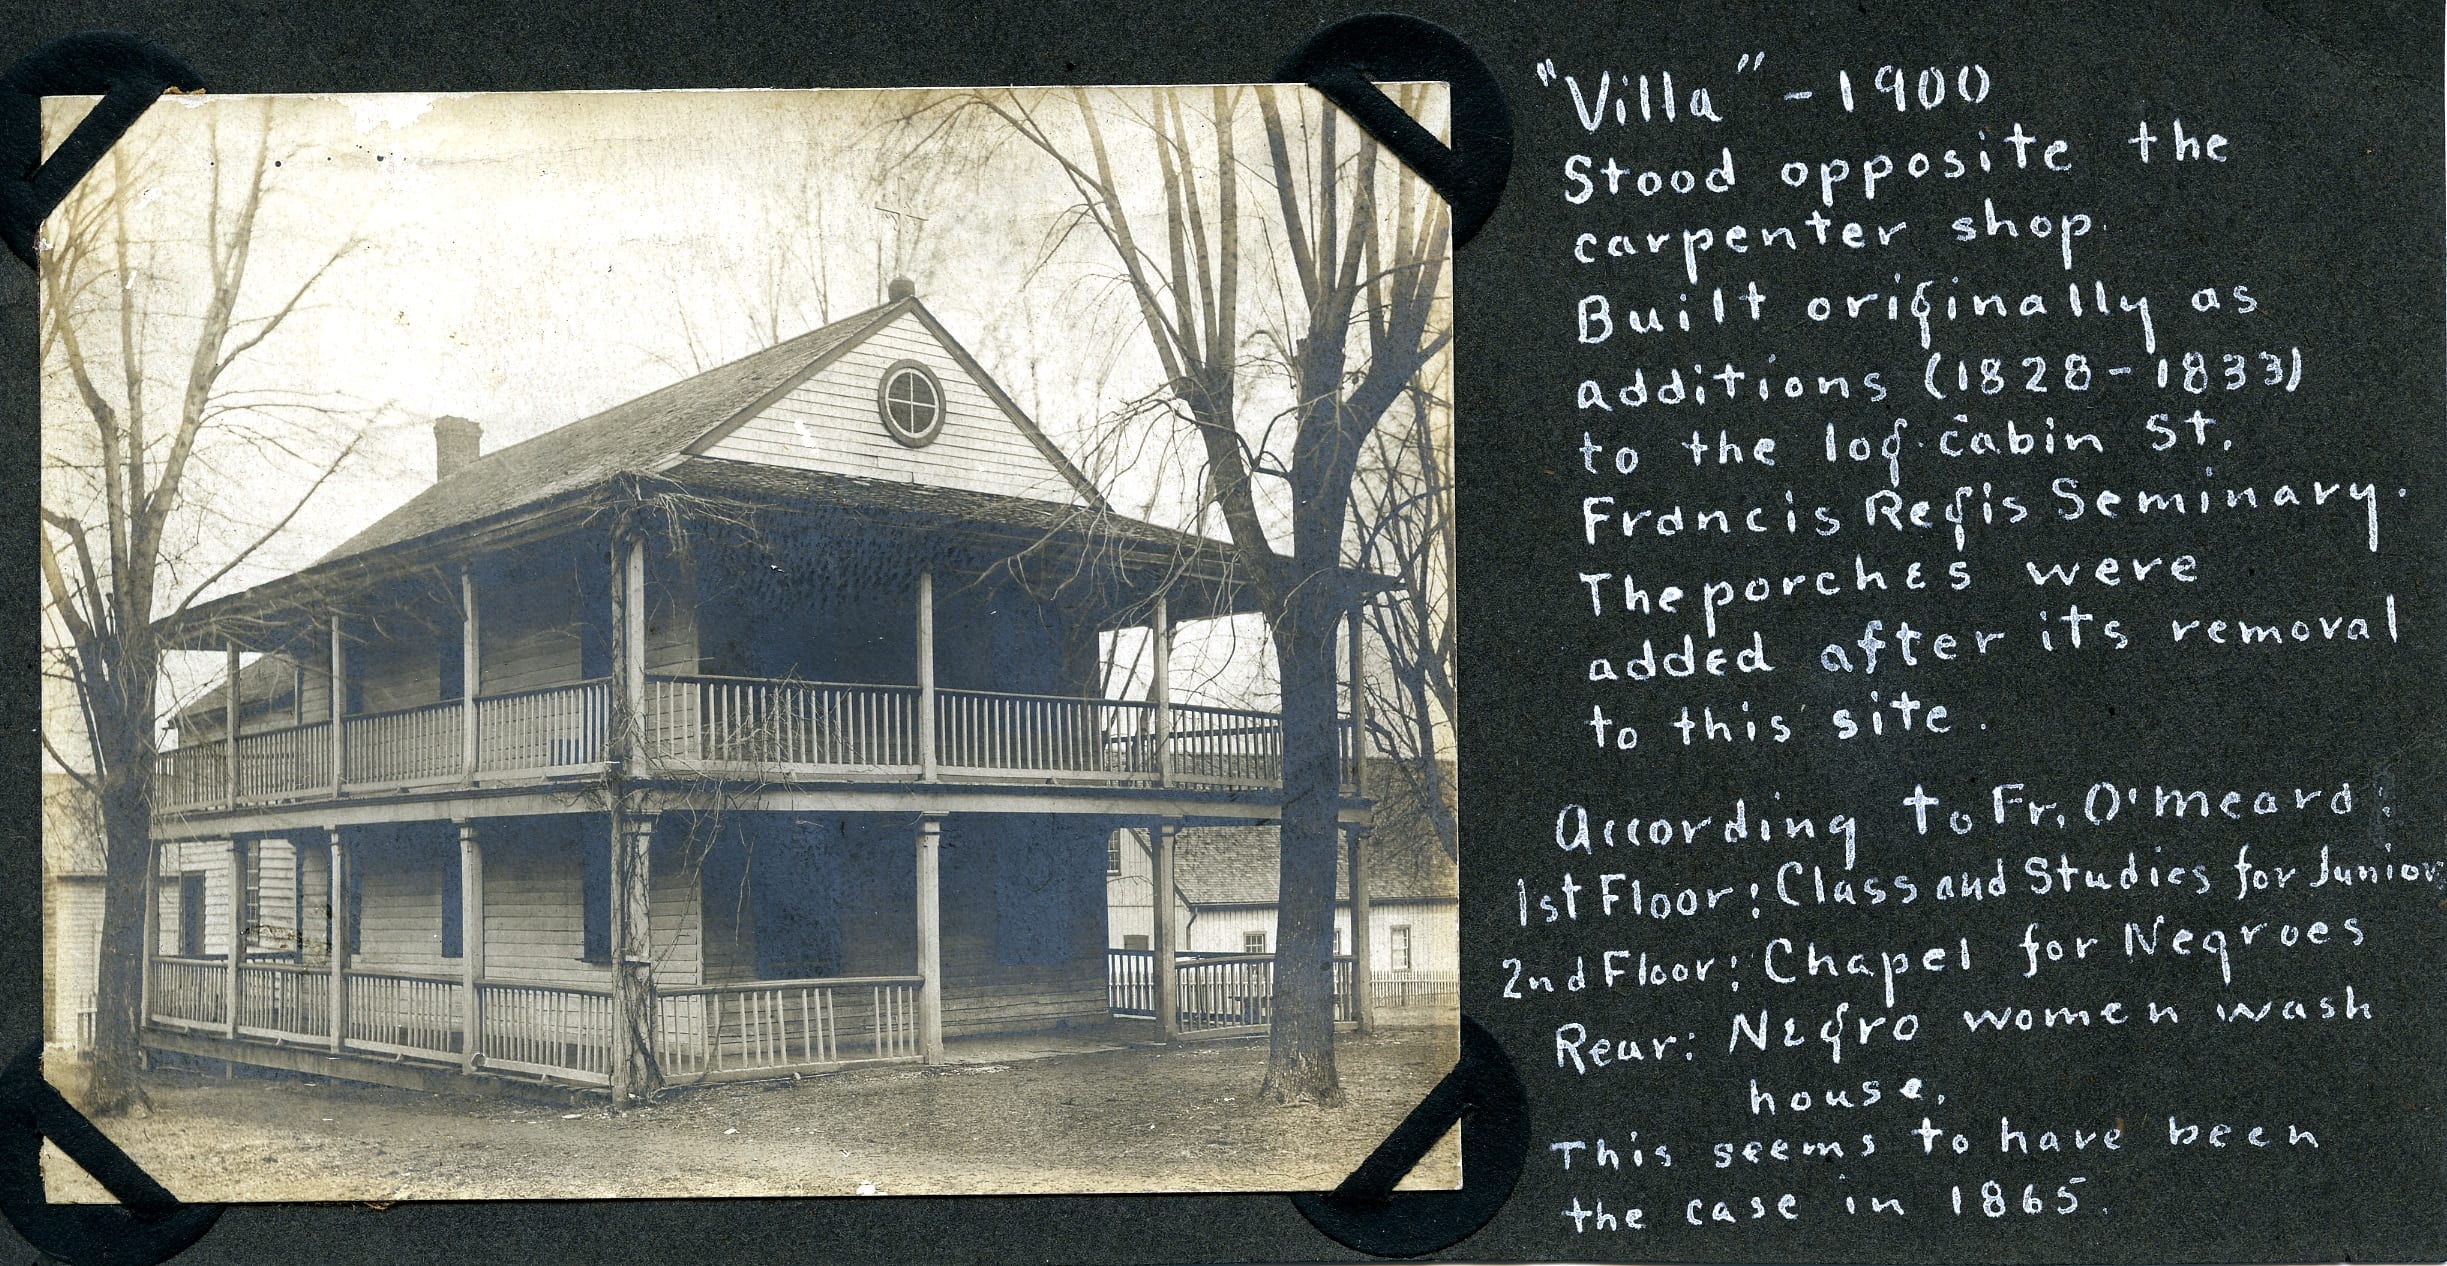 "Villa" - 1900
Stood opposite the
carpenter shop.
Built originally as
additions (1828-1833)
to the log cabin St.
Francis Regis Seminary.
The porches were
added after its removal
to this site.
According to Fr. O'meara:
1st Floor: Class and Studies for Junior
2nd Floor: Chapel for Negroes
Rear: Negro women wash
house.
This seems to have been
the case in 1865.